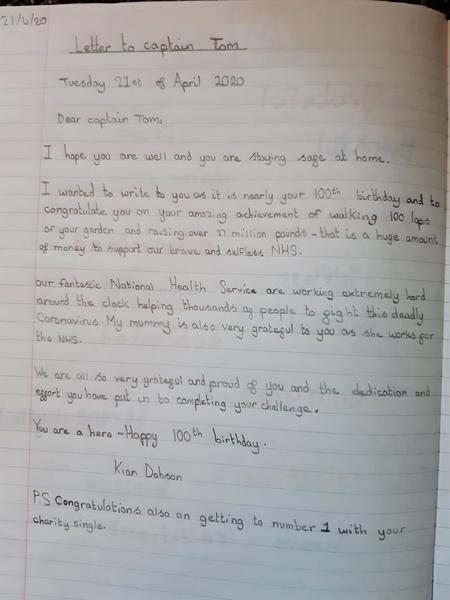 21/4/20
Letter to captain Tom
Tuesday 21st of April 2020
Dear captain Tom,
I hope you are well and you are staying safe at home.
I wanted to write to you as it is nearly your 100th birthday and to
congratulate you on your amazing achievement of walking 100 laps
of your garden and raising over 27 million pounds - that is a huge amount
of money to support our brave and selfless NHS.
our fantastic National Health Service are working extremely hard
around the clock helping thousands of people to fight this deadly
Coronavirus. My mummy is also very grateful to you as she works for
the NHS.
We are all so very grateful and proud of you and the dedication and
effort you have put in to completing your challenge.
You are a hero - Happy 100th birthday.
Kian Dobson
P.S Congratulations also on getting to number 1 with your
charity single.